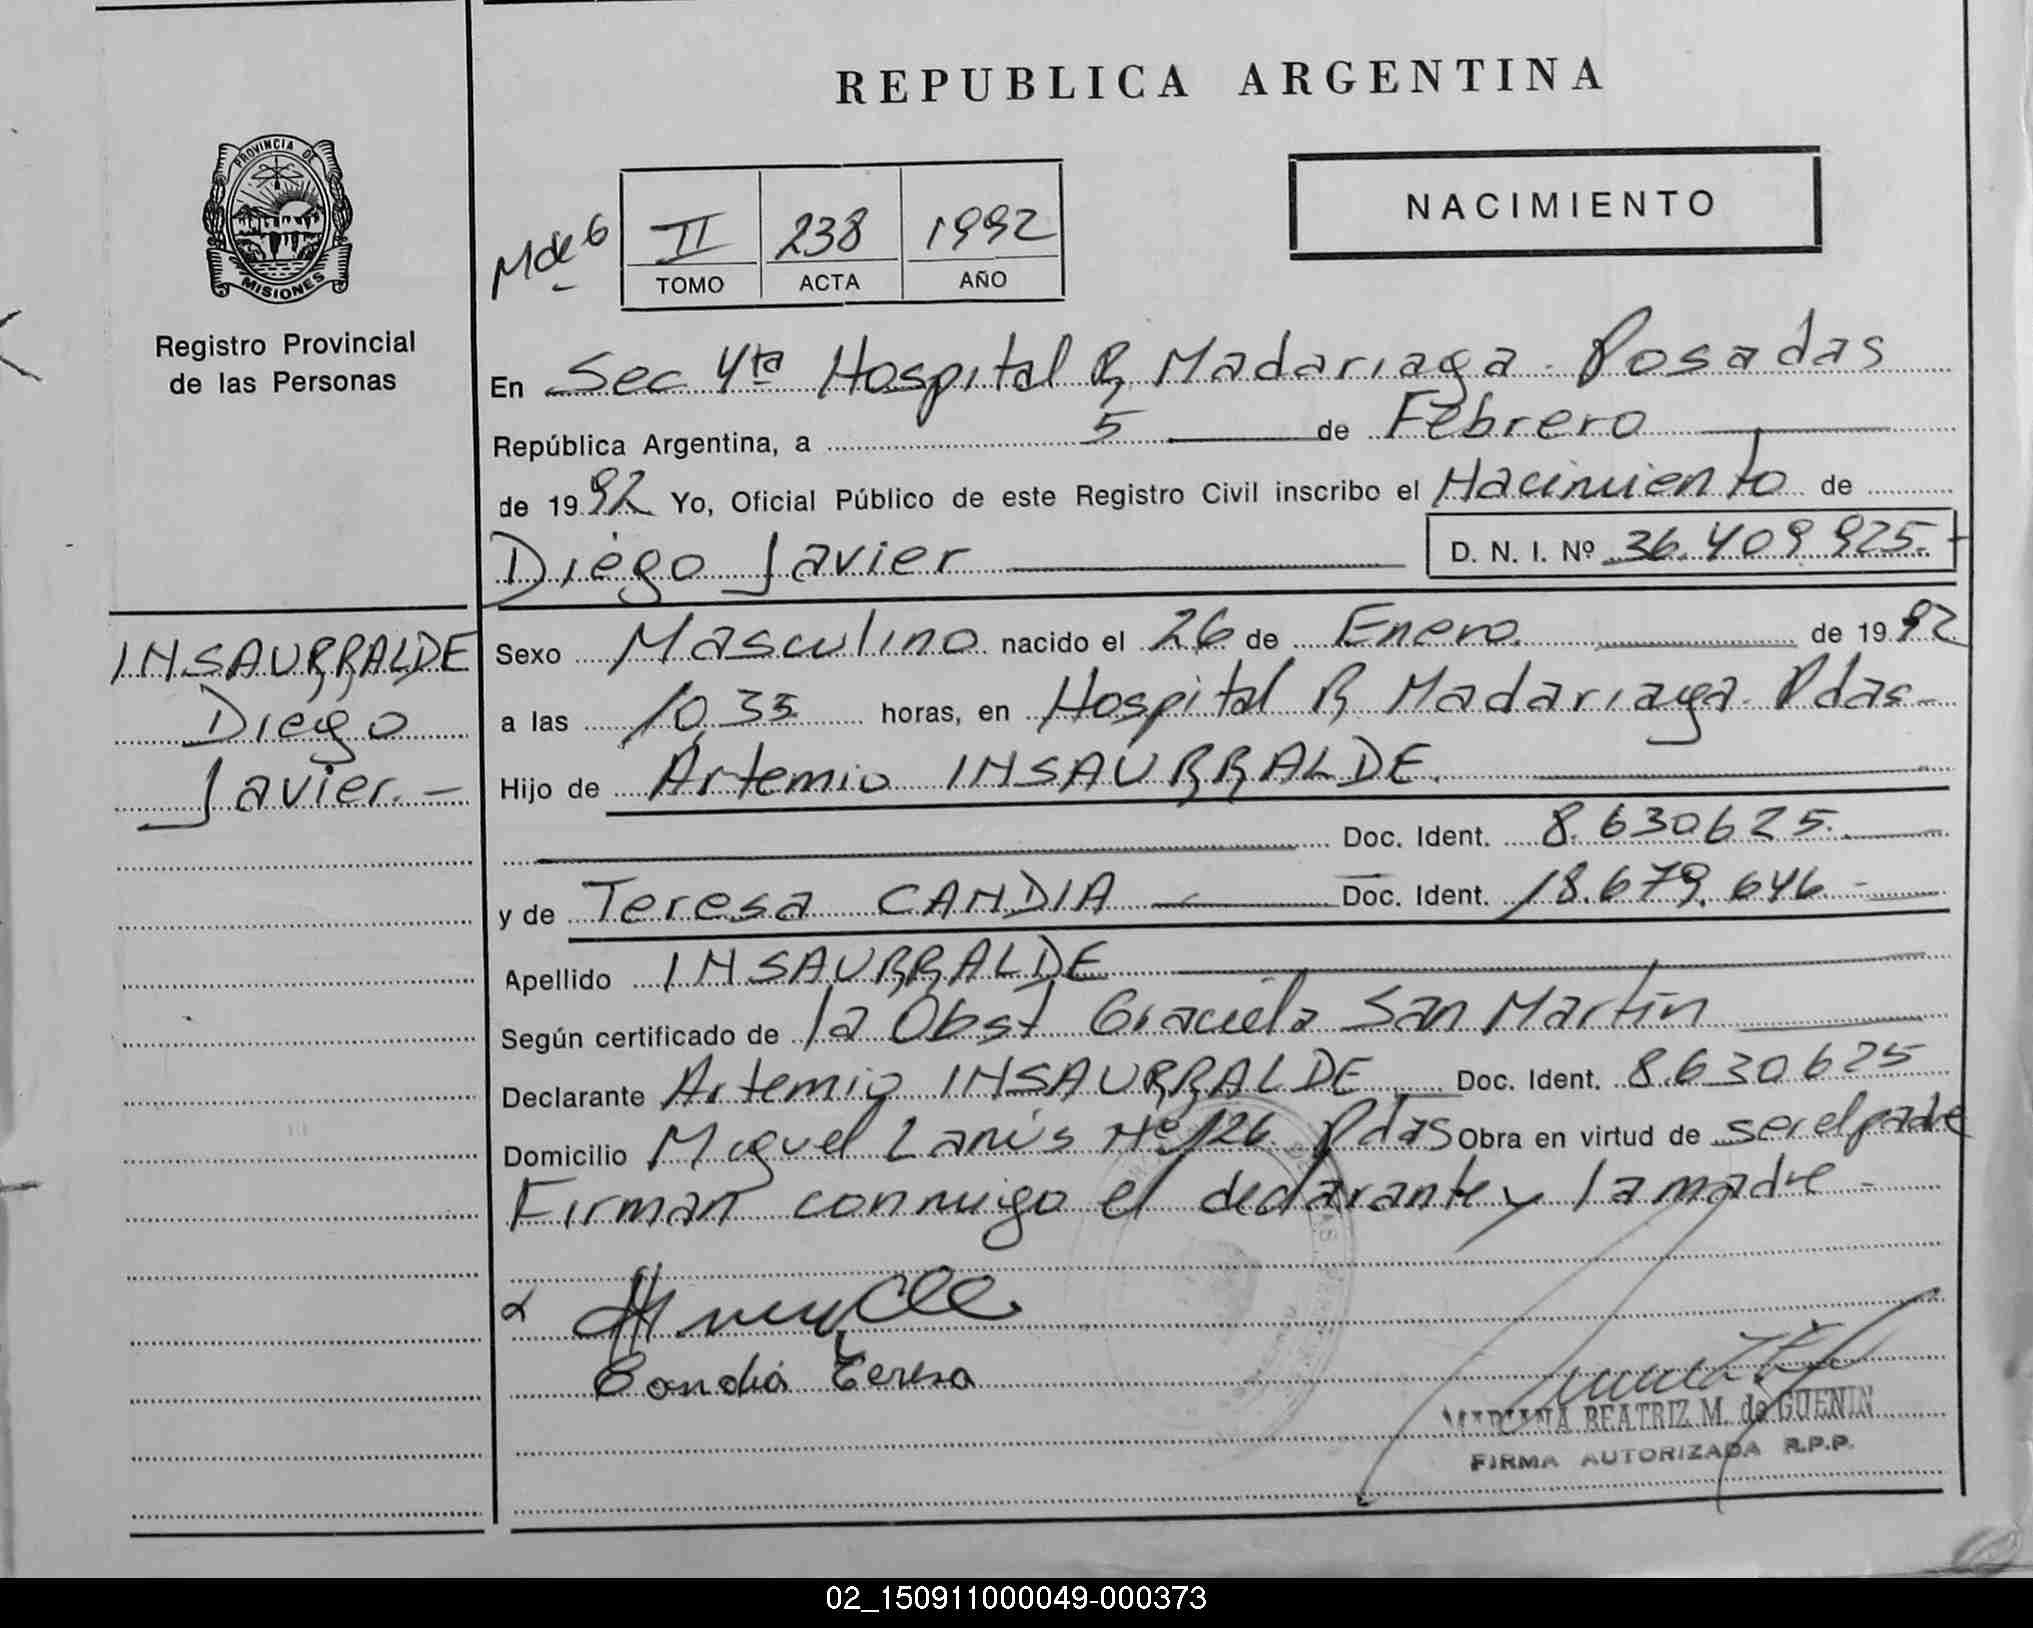 REPUBLICA ARGENTINA
PROVINCIA DE
MISIONES
Registro Provincial
de las Personas
NACIMIENTO
II 238 1992
TOMO ACTA AÑO
En Sec 4ta Hospital R, Madariaga - Posadas
República Argentina, a 5 de Febrero
de 1992 Yo, Oficial Público de este Registro Civil inscribo el Nacimiento de
Diego Javier D. N. I. Nº 36.409.925.-
INSAURRALDE
Diego
Javier.-
Sexo Masculino nacido el 26 de Enero. de 1992
a las 10,35 horas, en Hospital R, Madariaga - Pdas -
Hijo de Artemio INSAURRALDE.
Doc. Ident. 8.630625.
y de Teresa CANDIA Doc. Ident. 18.679.646 -
Apellido INSAURRALDE
Según certificado de la Obst Graciela San Martín
Declarante Artemio INSAURRALDE Doc. Ident. 8.630625
Domicilio Miguel Lanús Nº 126 Pdas Obra en virtud de ser el padre
Firman conmigo el declarante y la madre -
Candia Teresa
MARIANA BEATRIZ M. de GUENIN
FIRMA AUTORIZADA R.P.P.
02_150911000049-000373